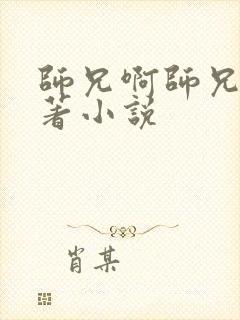 師兄啊師兄
著小説
肖某